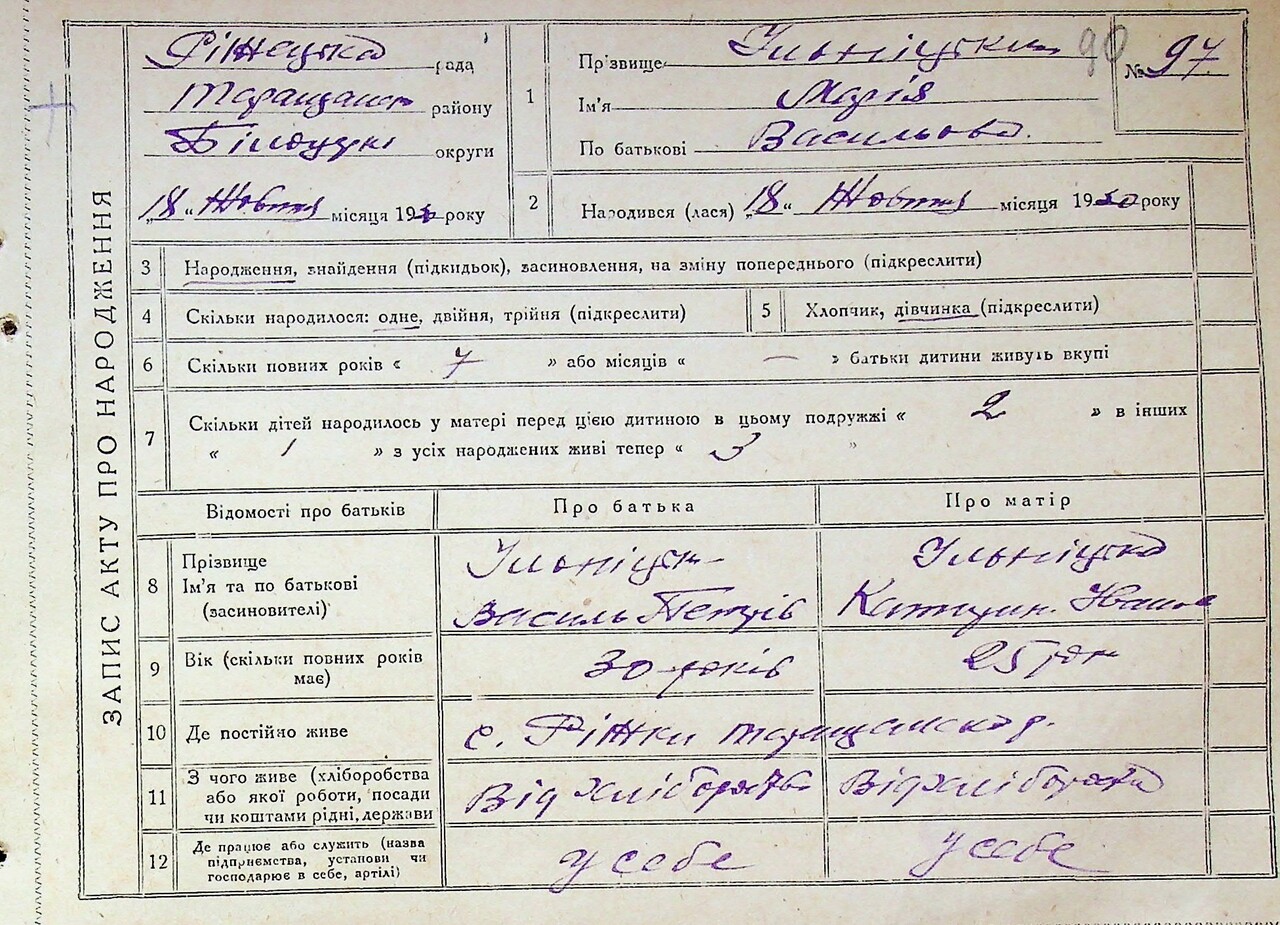 ЗАПИС АКТУ ПРО НАРОДЖЕННЯ
Ріжецька рада
Таращанськ району
Білоцуркі округи
„18“ Жовтня місяця 1930 року
1 Прізвище Ільніцьки 90 № 97
Ім'я Марія
По батькові Васильова.
2 Народився (лася) „18“ Жовтня місяця 1930 року
3 Народження, знайдення (підкидьок), засиновлення, на зміну попереднього (підкреслити)
4 Скільки народилося: одне, двійня, трійня (підкреслити) 5 Хлопчик, дівчинка (підкреслити)
6 Скільки повних років « 7 » або місяців « — » батьки дитини живуть вкупі
7 Скільки дітей народилось у матері перед цією дитиною в цьому подружжі « 2 » в інших
« 1 » з усіх народжених живі тепер « 3 »
Відомості про батьків Про батька Про матір
8 Прізвище Ільніцьк Ільніцька
Ім'я та по батькові
(засиновителі) Василь Петрів Катерин. Іванов
9 Вік (скільки повних років має) 30 років 25 рок
10 Де постійно живе с. Ріжки Таращанськ р.
11 З чого живе (хліборобства
або якої роботи, посади Від хліборобства Від хліборобства
чи коштами рідні, держави
12 Де працює або служить (назва
підприємства, установи чи у себе у себе
господарює в себе, артілі)